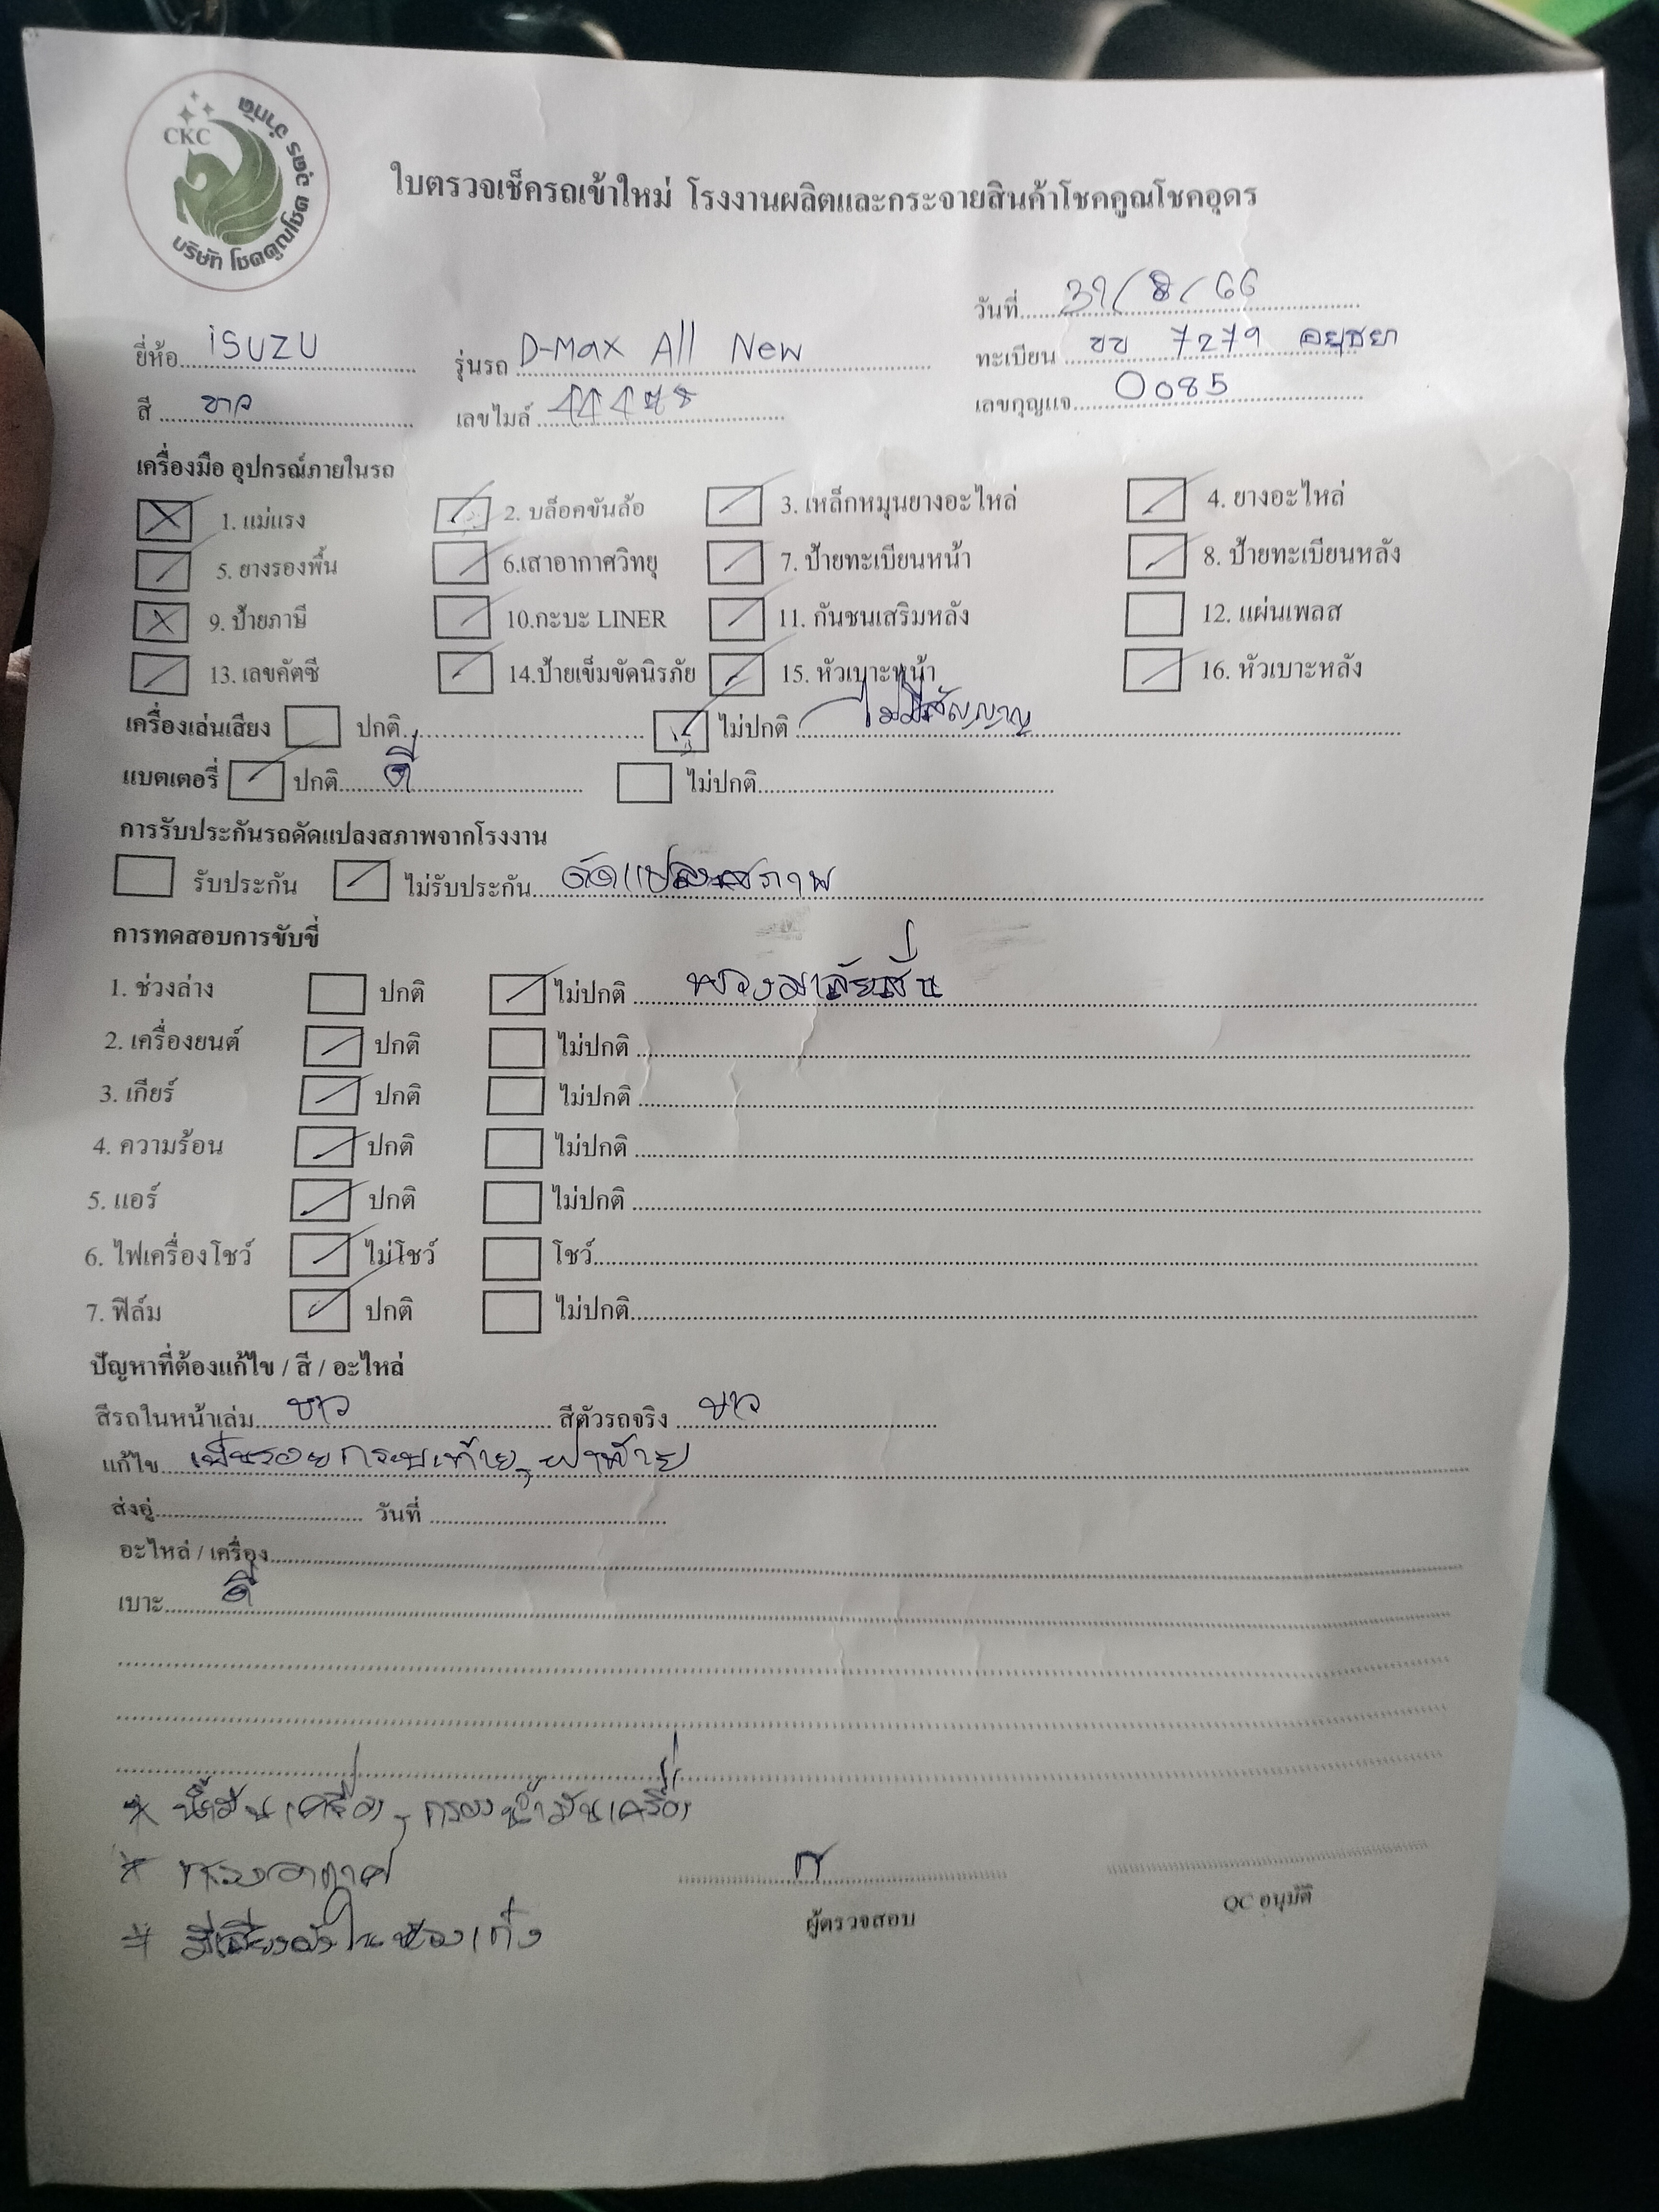 CKC
บริษัท โชคคูณโชค อุดร จำกัด
ใบตรวจเช็ครถเข้าใหม่ โรงงานผลิตและกระจายสินค้าโชคคูณโชคอุดร
วันที่ 31/8/66
ยี่ห้อ iSUZU รุ่นรถ D-Max All New ทะเบียน ขข 7279 อยุธยา
สี ขาว เลขไมล์ เลขกุญแจ 0085
เครื่องมือ อุปกรณ์ภายในรถ
1. แม่แรง 2. บล็อคขันล้อ 3. เหล็กหมุนยางอะไหล่ 4. ยางอะไหล่
5. ยางรองพื้น 6.เสาอากาศวิทยุ 7. ป้ายทะเบียนหน้า 8. ป้ายทะเบียนหลัง
9. ป้ายภาษี 10.กะบะ LINER 11. กันชนเสริมหลัง 12. แผ่นเพลส
13. เลขคัตซี 14.ป้ายเข็มขัดนิรภัย 15. หัวเบาะหน้า 16. หัวเบาะหลัง
เครื่องเล่นเสียง ปกติ ไม่ปกติ ไม่มีสัญญาณ
แบตเตอรี่ ปกติ ดี ไม่ปกติ
การรับประกันรถดัดแปลงสภาพจากโรงงาน
รับประกัน ไม่รับประกัน ดัดแปลงสภาพ
การทดสอบการขับขี่
1. ช่วงล่าง ปกติ ไม่ปกติ พวงมาลัยสั่น
2. เครื่องยนต์ ปกติ ไม่ปกติ
3. เกียร์ ปกติ ไม่ปกติ
4. ความร้อน ปกติ ไม่ปกติ
5. แอร์ ปกติ ไม่ปกติ
6. ไฟเครื่องโชว์ ไม่โชว์ โชว์
7. ฟิล์ม ปกติ ไม่ปกติ
ปัญหาที่ต้องแก้ไข / สี / อะไหล่
สีรถในหน้าเล่ม ขาว สีตัวรถจริง ขาว
แก้ไข เป็นรอย
ส่งอู่ วันที่
อะไหล่ / เครื่อง
เบาะ ดี
* น้ำมันเครื่อง, กรองน้ำมันเครื่อง
* กรองอากาศ
ผู้ตรวจสอบ QC อนุมัติ
* มีเสียงดังในห้องเก๋ง